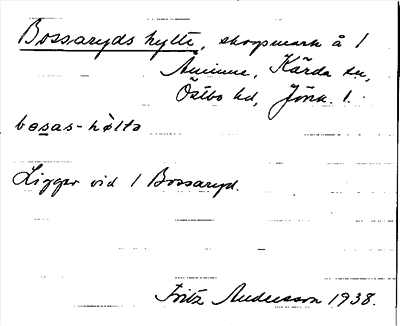 Bossaryds hytte, skogsmark å 1
Aminne, Kärda sn,
Östbo hd, Jönk. l.
bosas-hølta
Ligger vid 1 Bossaryd.
Fritz Andersson 1938.